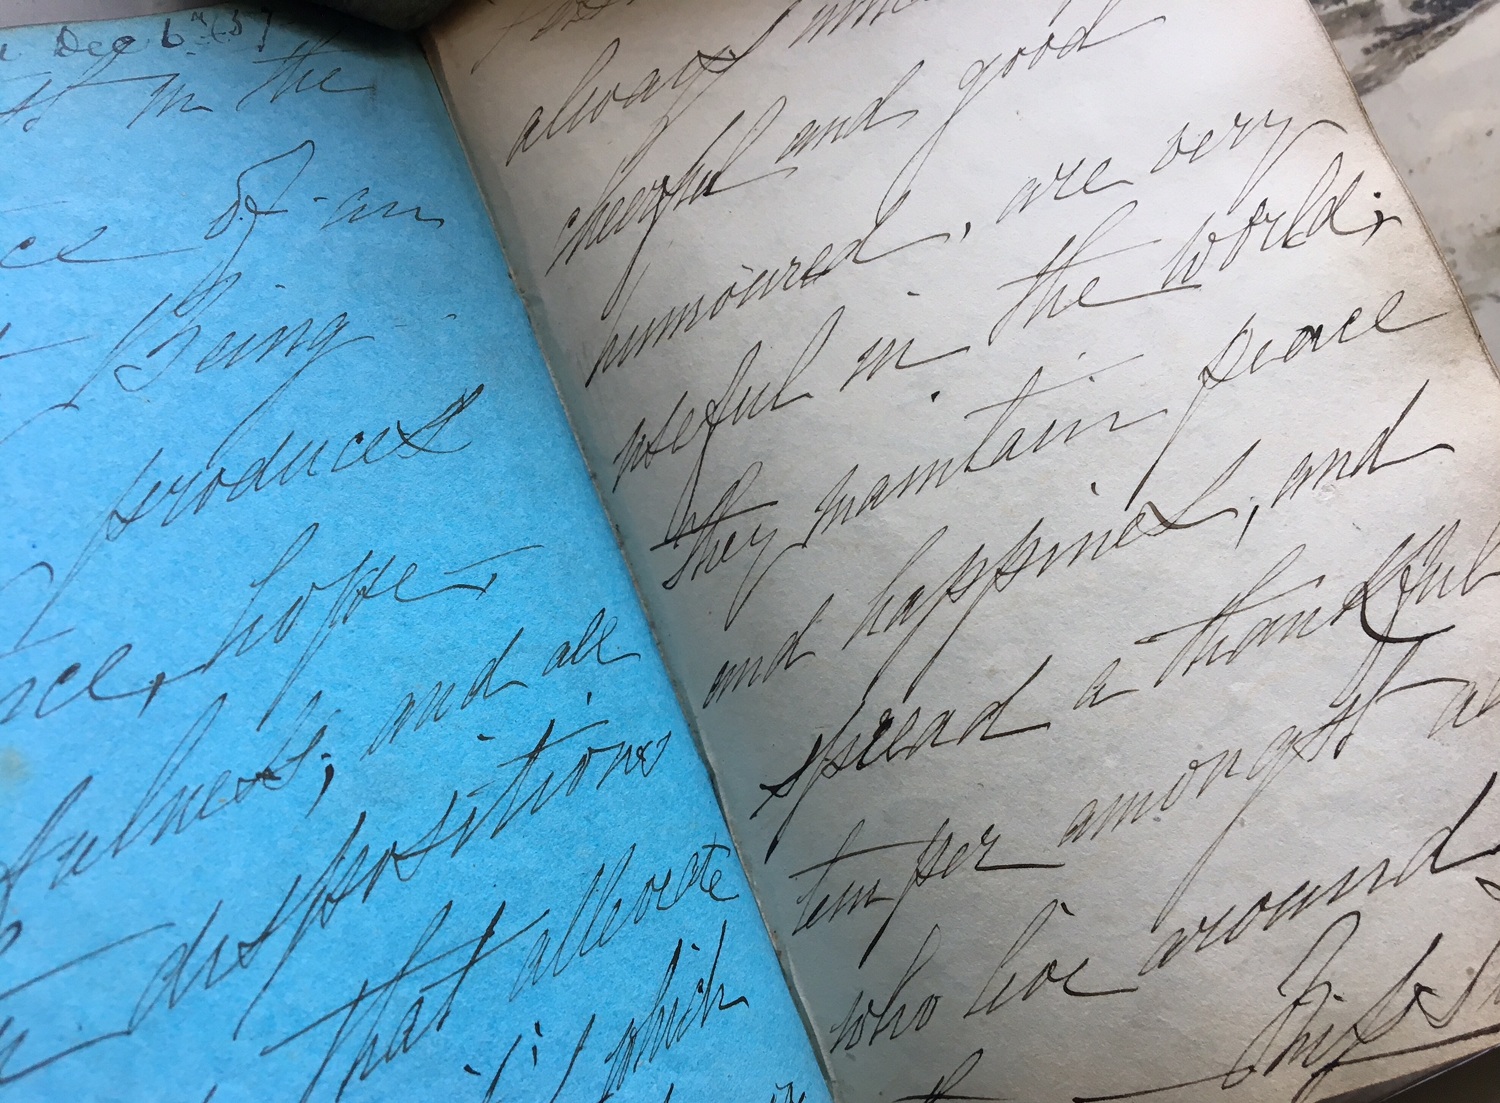 Dec 6th 57
in the
of an
Being
produces
hope,
fulness; and all
dispositions
that alleviate
which
always
cheerful and good
humoured, are very
useful in the world;
they maintain peace
and happiness, and
spread a thankful
temper amongst
who live around